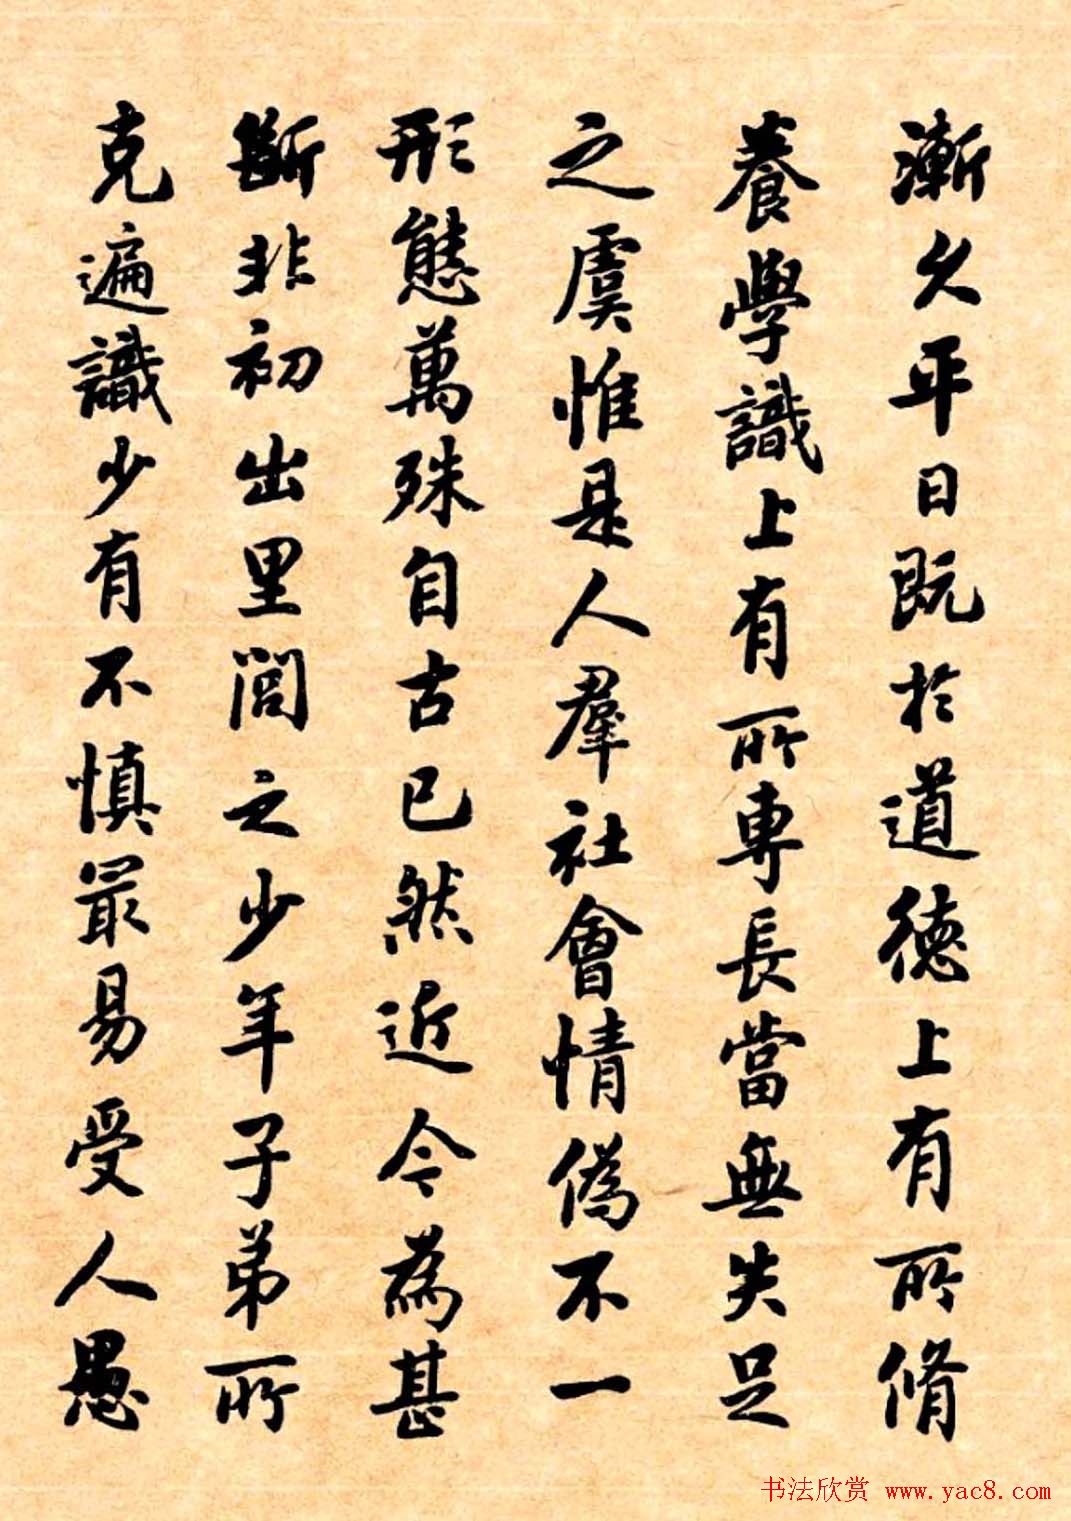 漸久平日既於道德上有所脩
養學識上有所專長當無失足
之虞惟是人羣社會情偽不一
形態萬殊自古已然近今為甚
斷非初出里閭之少年子弟所
克遍識少有不慎最易受人愚
书法欣赏 www.yac8.com